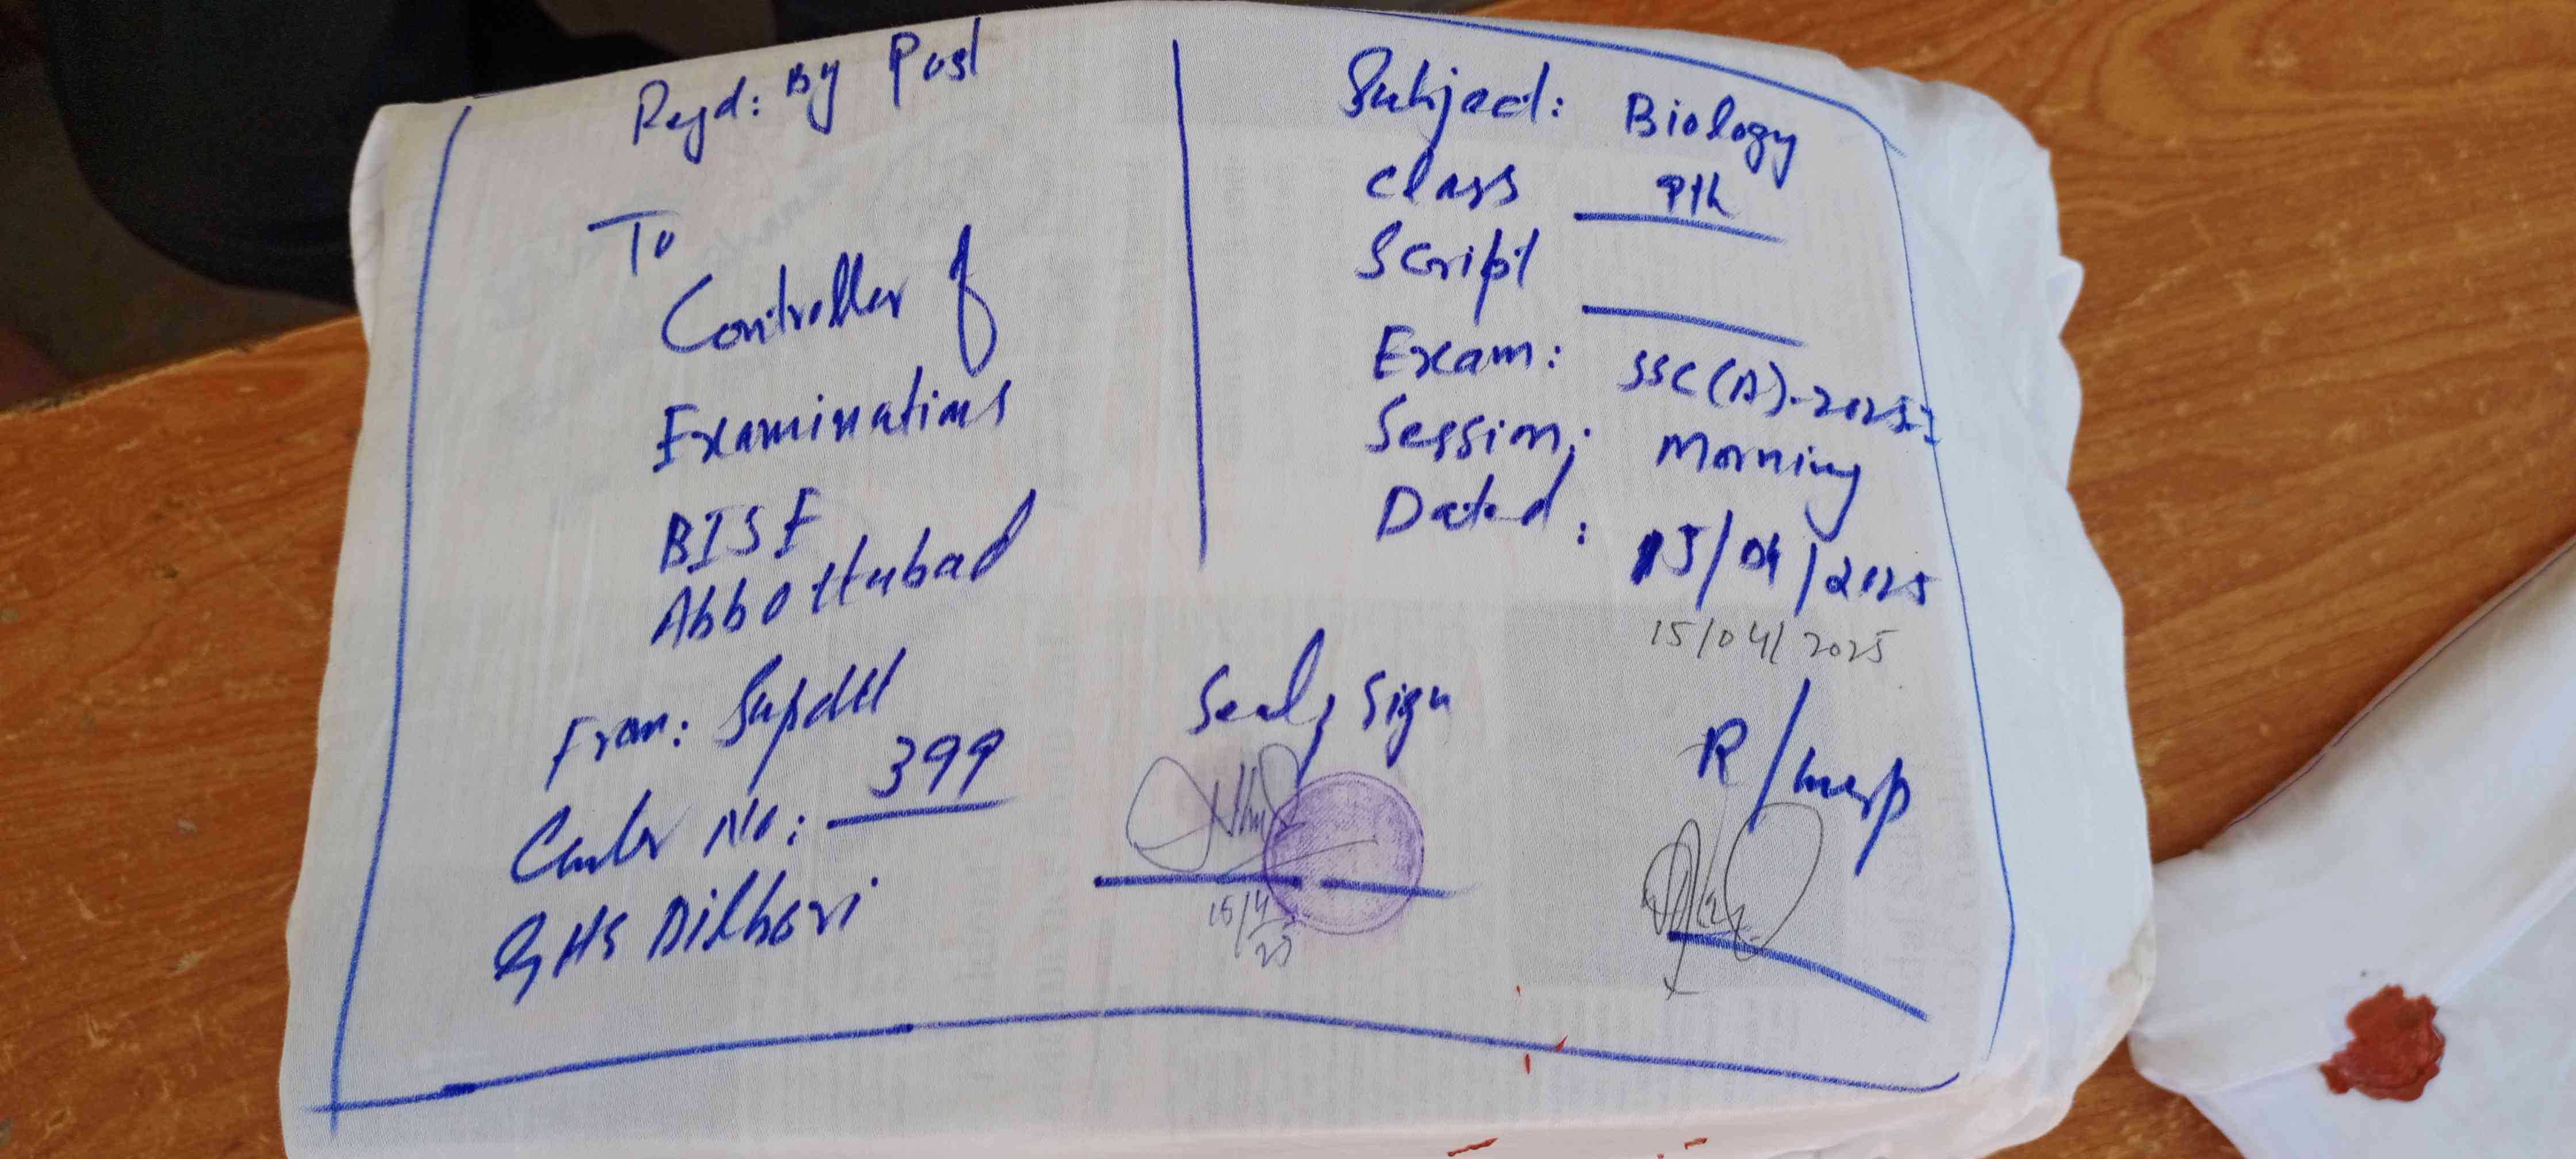 Regd: By Post
To
Controller of
Examinations
BISE
Abbottabad
From: Supdtt
Center No: 399
GHS Dilbori
Subject: Biology
Class 9th
Script
Exam: SSC(A)-2025
Session: Morning
Dated: 15/04/2025
15/04/2025
Seal, Sign
15/4/25
R/Insp